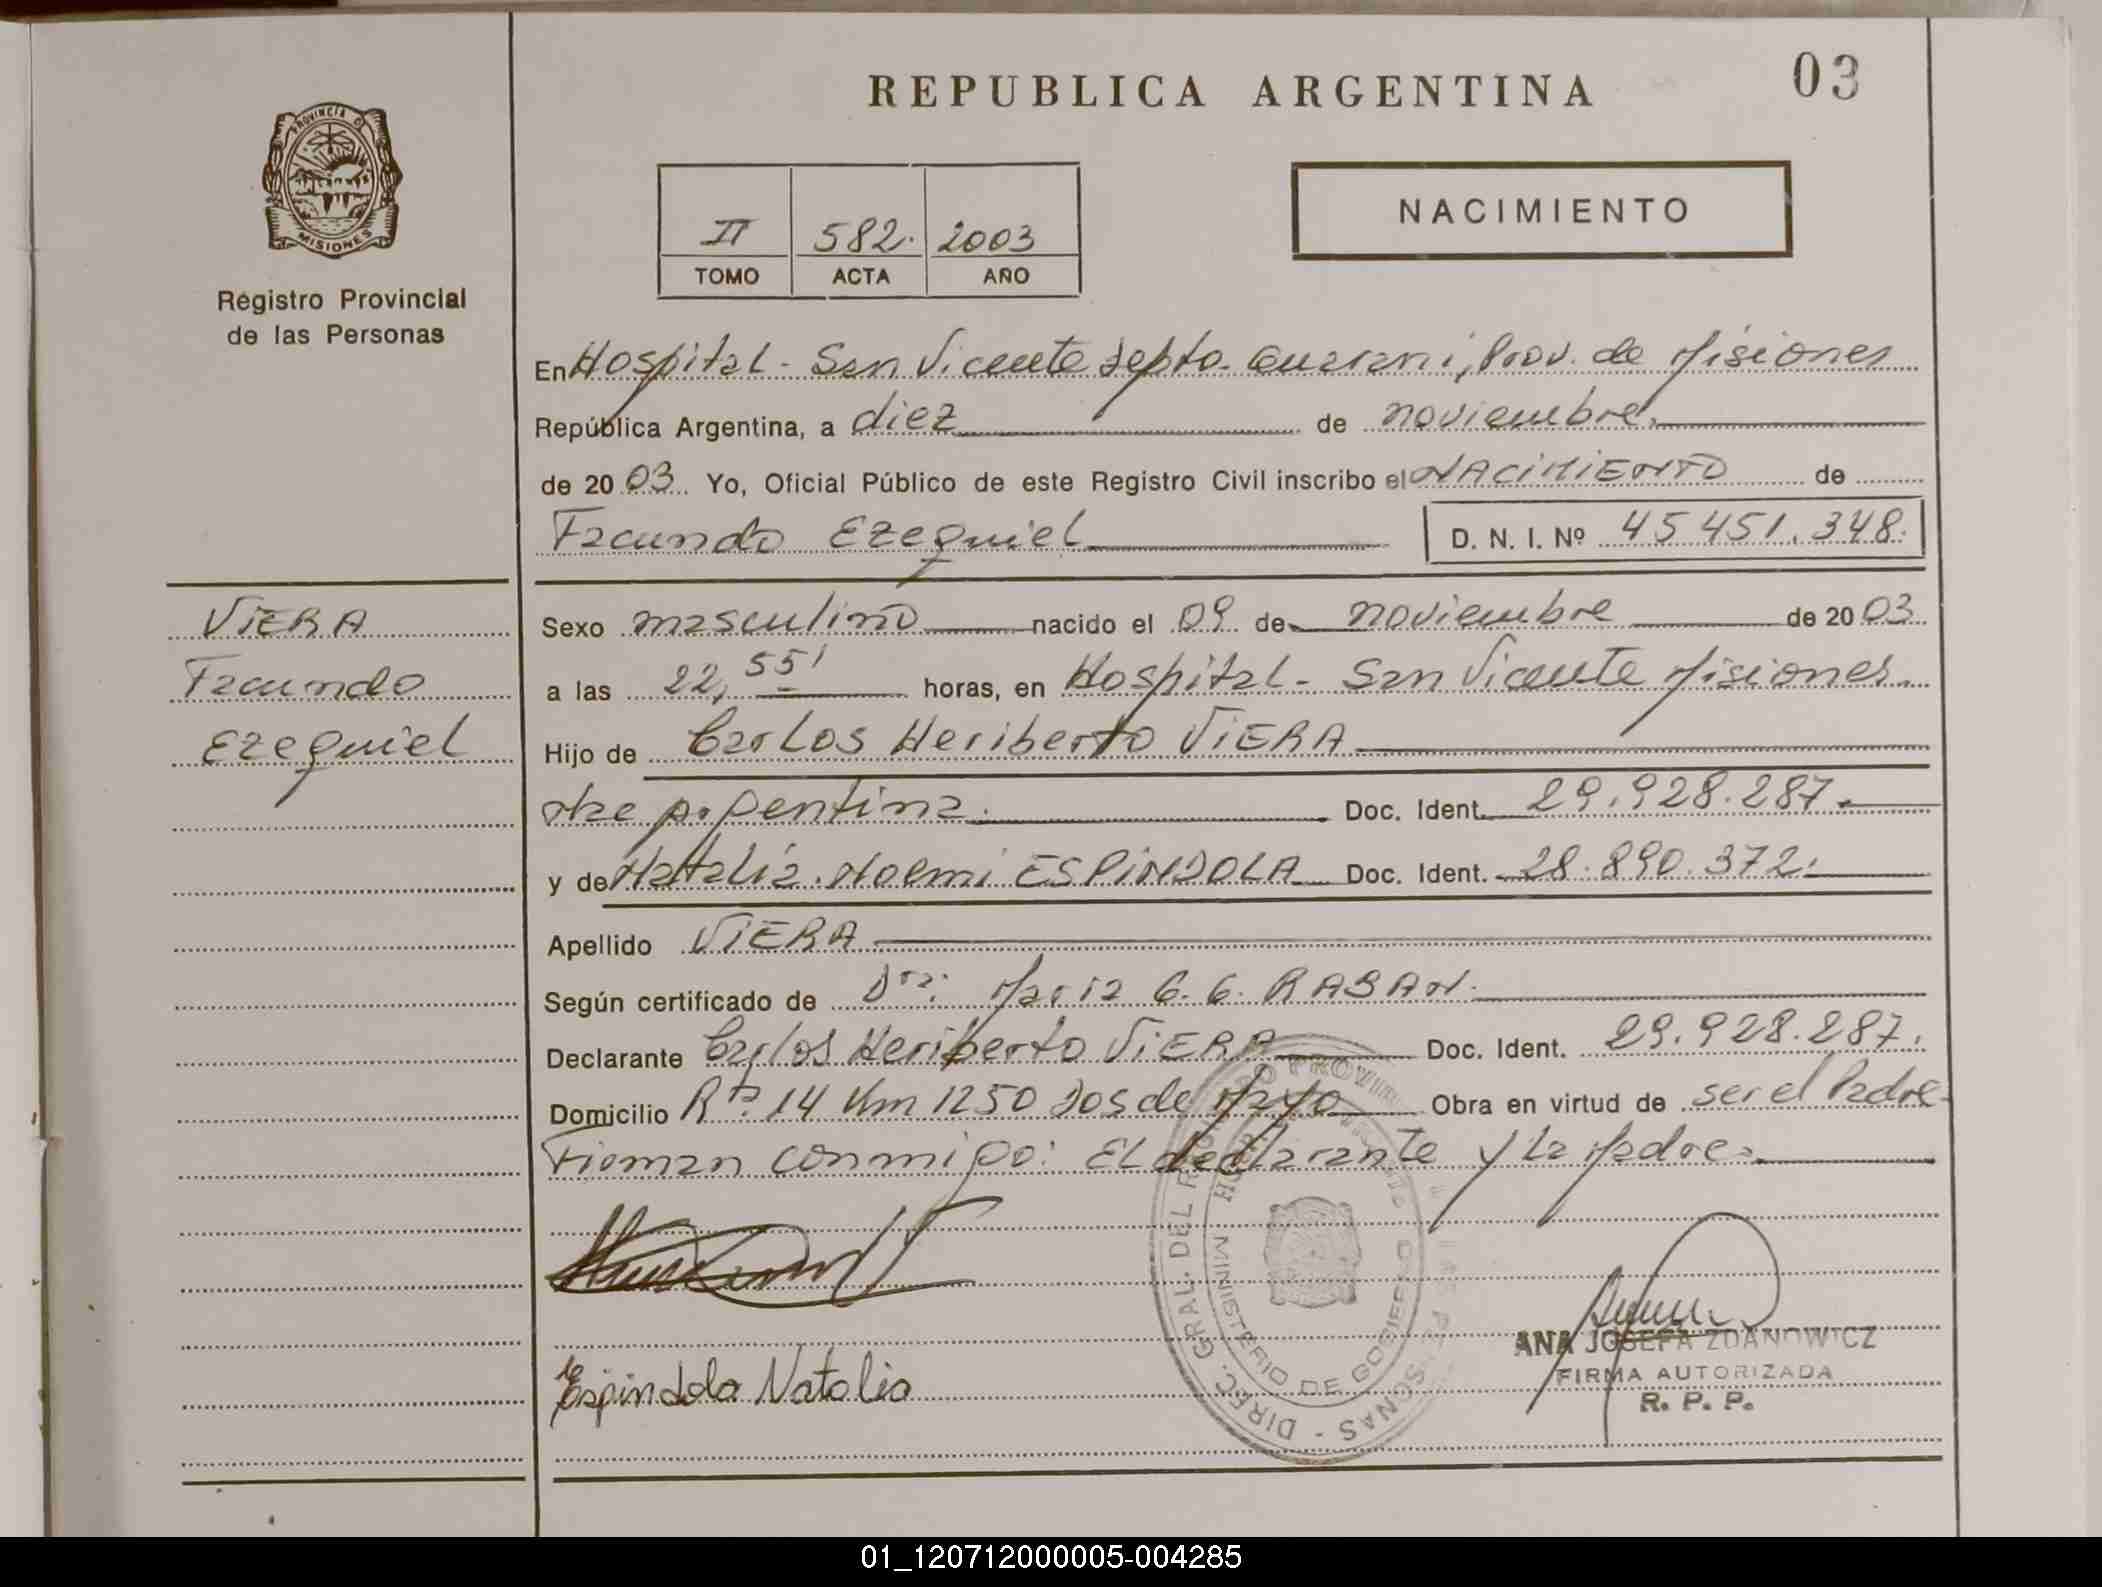 REPUBLICA ARGENTINA
03
PROVINCIA DE
MISIONES
Registro Provincial
de las Personas
NACIMIENTO
II 582. 2003
TOMO ACTA AÑO
En Hospital - San Vicente Depto. Guarani, Prov. de Misiones
República Argentina, a diez de noviembre.
de 20 03 Yo, Oficial Público de este Registro Civil inscribo el NACIMIENTO de
Facundo Ezequiel D. N. I. Nº 45 451.348.
VIERA
Facundo
Ezequiel
Sexo masculino nacido el 09 de noviembre de 20 03
a las 22,55' horas, en Hospital - San Vicente Misiones.
Hijo de Carlos Heriberto VIERA
Doc. Ident. 29.928.287.
y de Natalia Noemi ESPINDOLA Doc. Ident. 28.890.372.
Apellido VIERA
Según certificado de Dra: Maria G. G. RABAN.
Declarante Carlos Heriberto VIERA Doc. Ident. 29.928.287.
Domicilio Rta. 14 Km 1250 Dos de Mayo Obra en virtud de ser el Padre
Firman conmigo: El declarante y la Madre.
DIREC. GRAL. DEL REGISTRO PROVINCIAL DE LAS PERSONAS
MINISTERIO DE GOBIERNO
Espindola Natalia
ANA JOSEFA ZDANOWICZ
FIRMA AUTORIZADA
R. P. P.
01_120712000005-004285